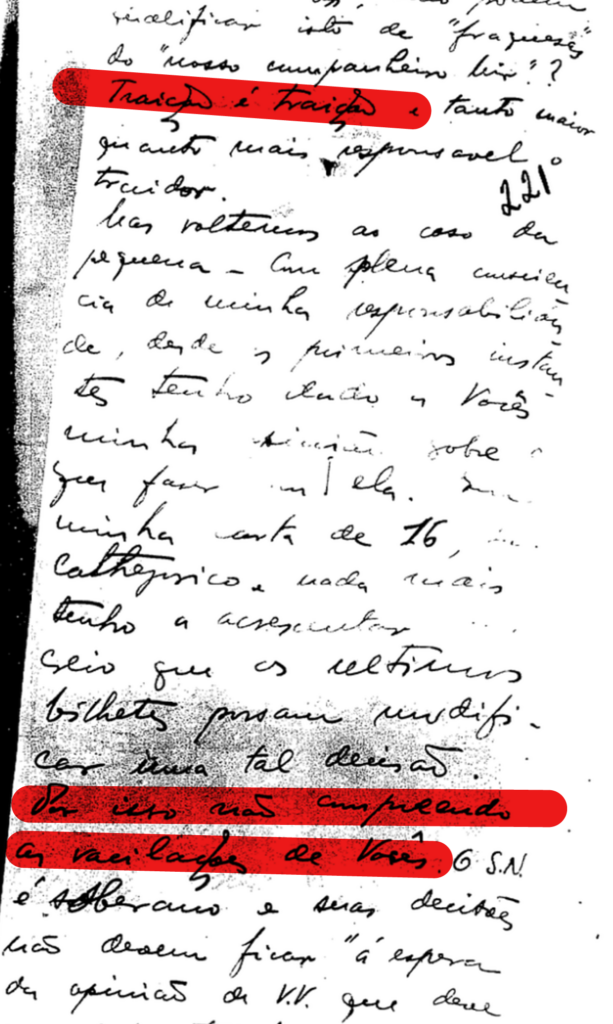 qualificar isto de "fraquesas"
do "nosso companheiro
Traição é traição e tanto maior
quanto mais responsavel o
traidor.
221
Mas voltemos ao caso da
pequena - Com plena conscien
cia de minha responsabilida
de, desde os primeiros instan
tes tenho dado a Vocês
minha opinião sobre o
que fazer ela.
minha carta de 16,
cathegorico e nada mais
tenho a acrescentar
Creio que os ultimos
bilhetes possam modifi-
car uma tal decisão.
Por isso não comprehendo
as vacilações de Vocês. O S.N.
é soberano e suas decisões
não devem ficar "á espera
da opinião de V.V. que deve